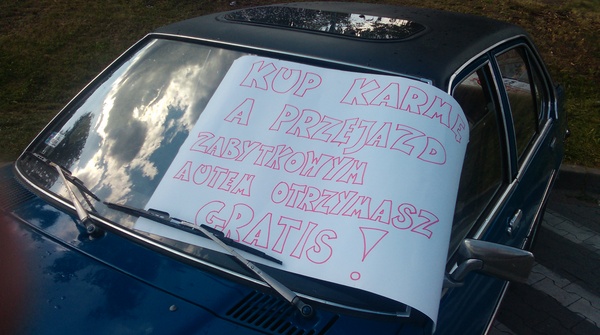 KUP KARMĘ
A PRZEJAZD
ZABYTKOWYM
AUTEM OTRZYMASZ
GRATIS!